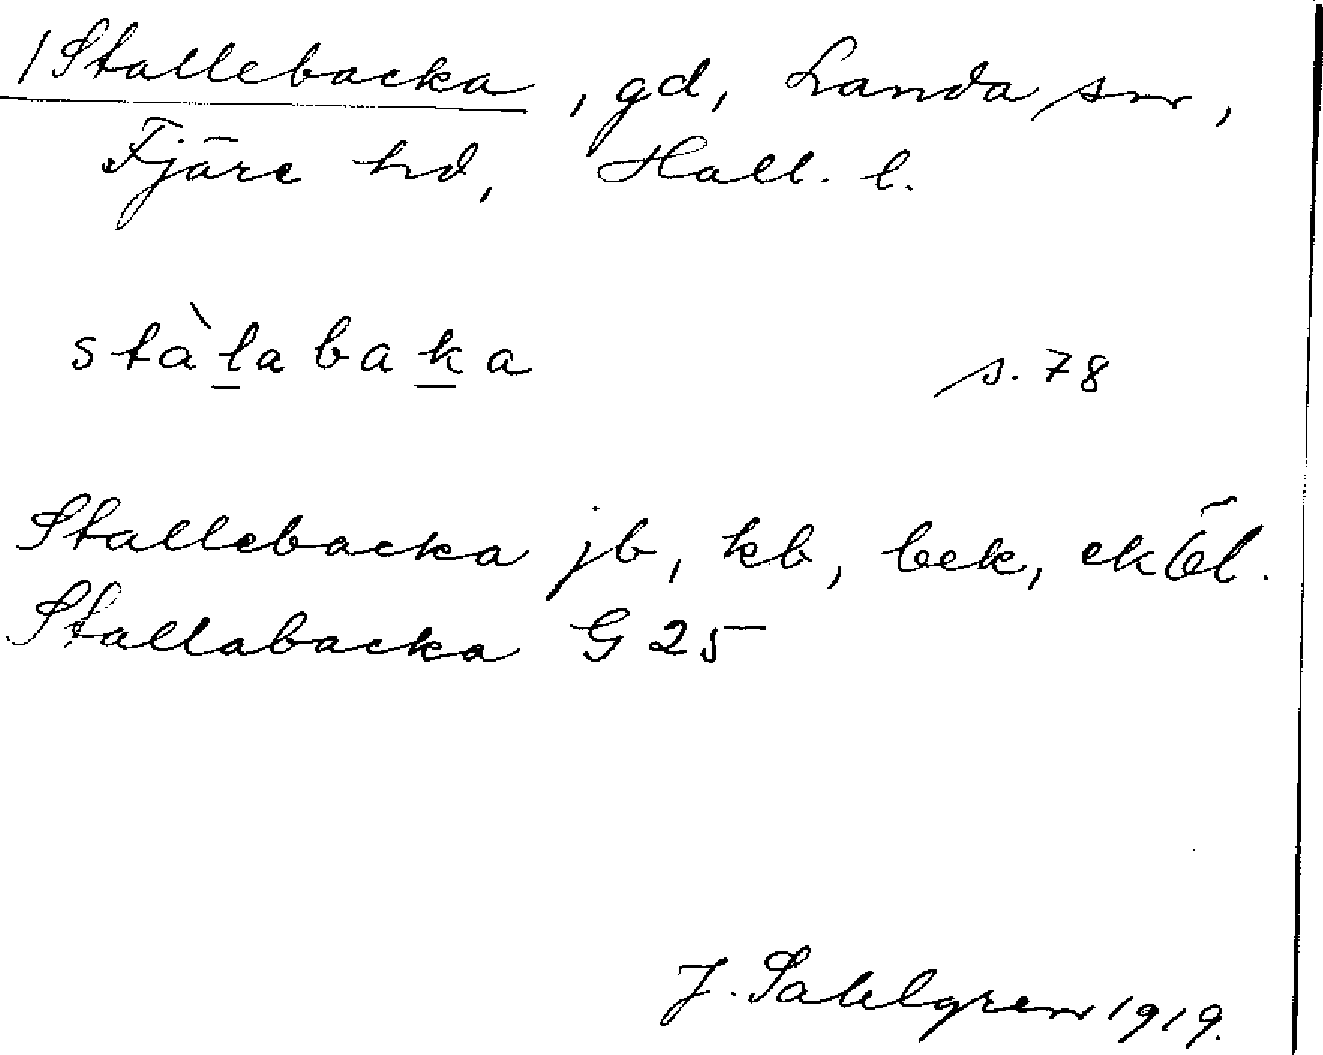 /Stallebacka, gd, Landa sn,
Fjäre hd, Hall. l.
stàlabaka s. 78
Stallebacka jb, kb, bek, ekbl.
Stallabacka G 25
J. Sahlgren 1919.